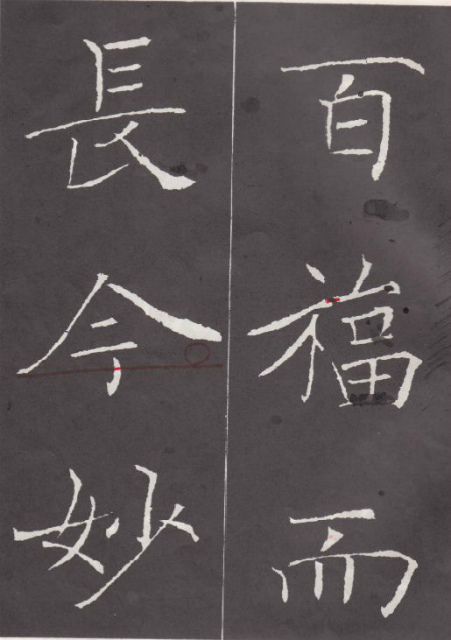 百福而
長今妙